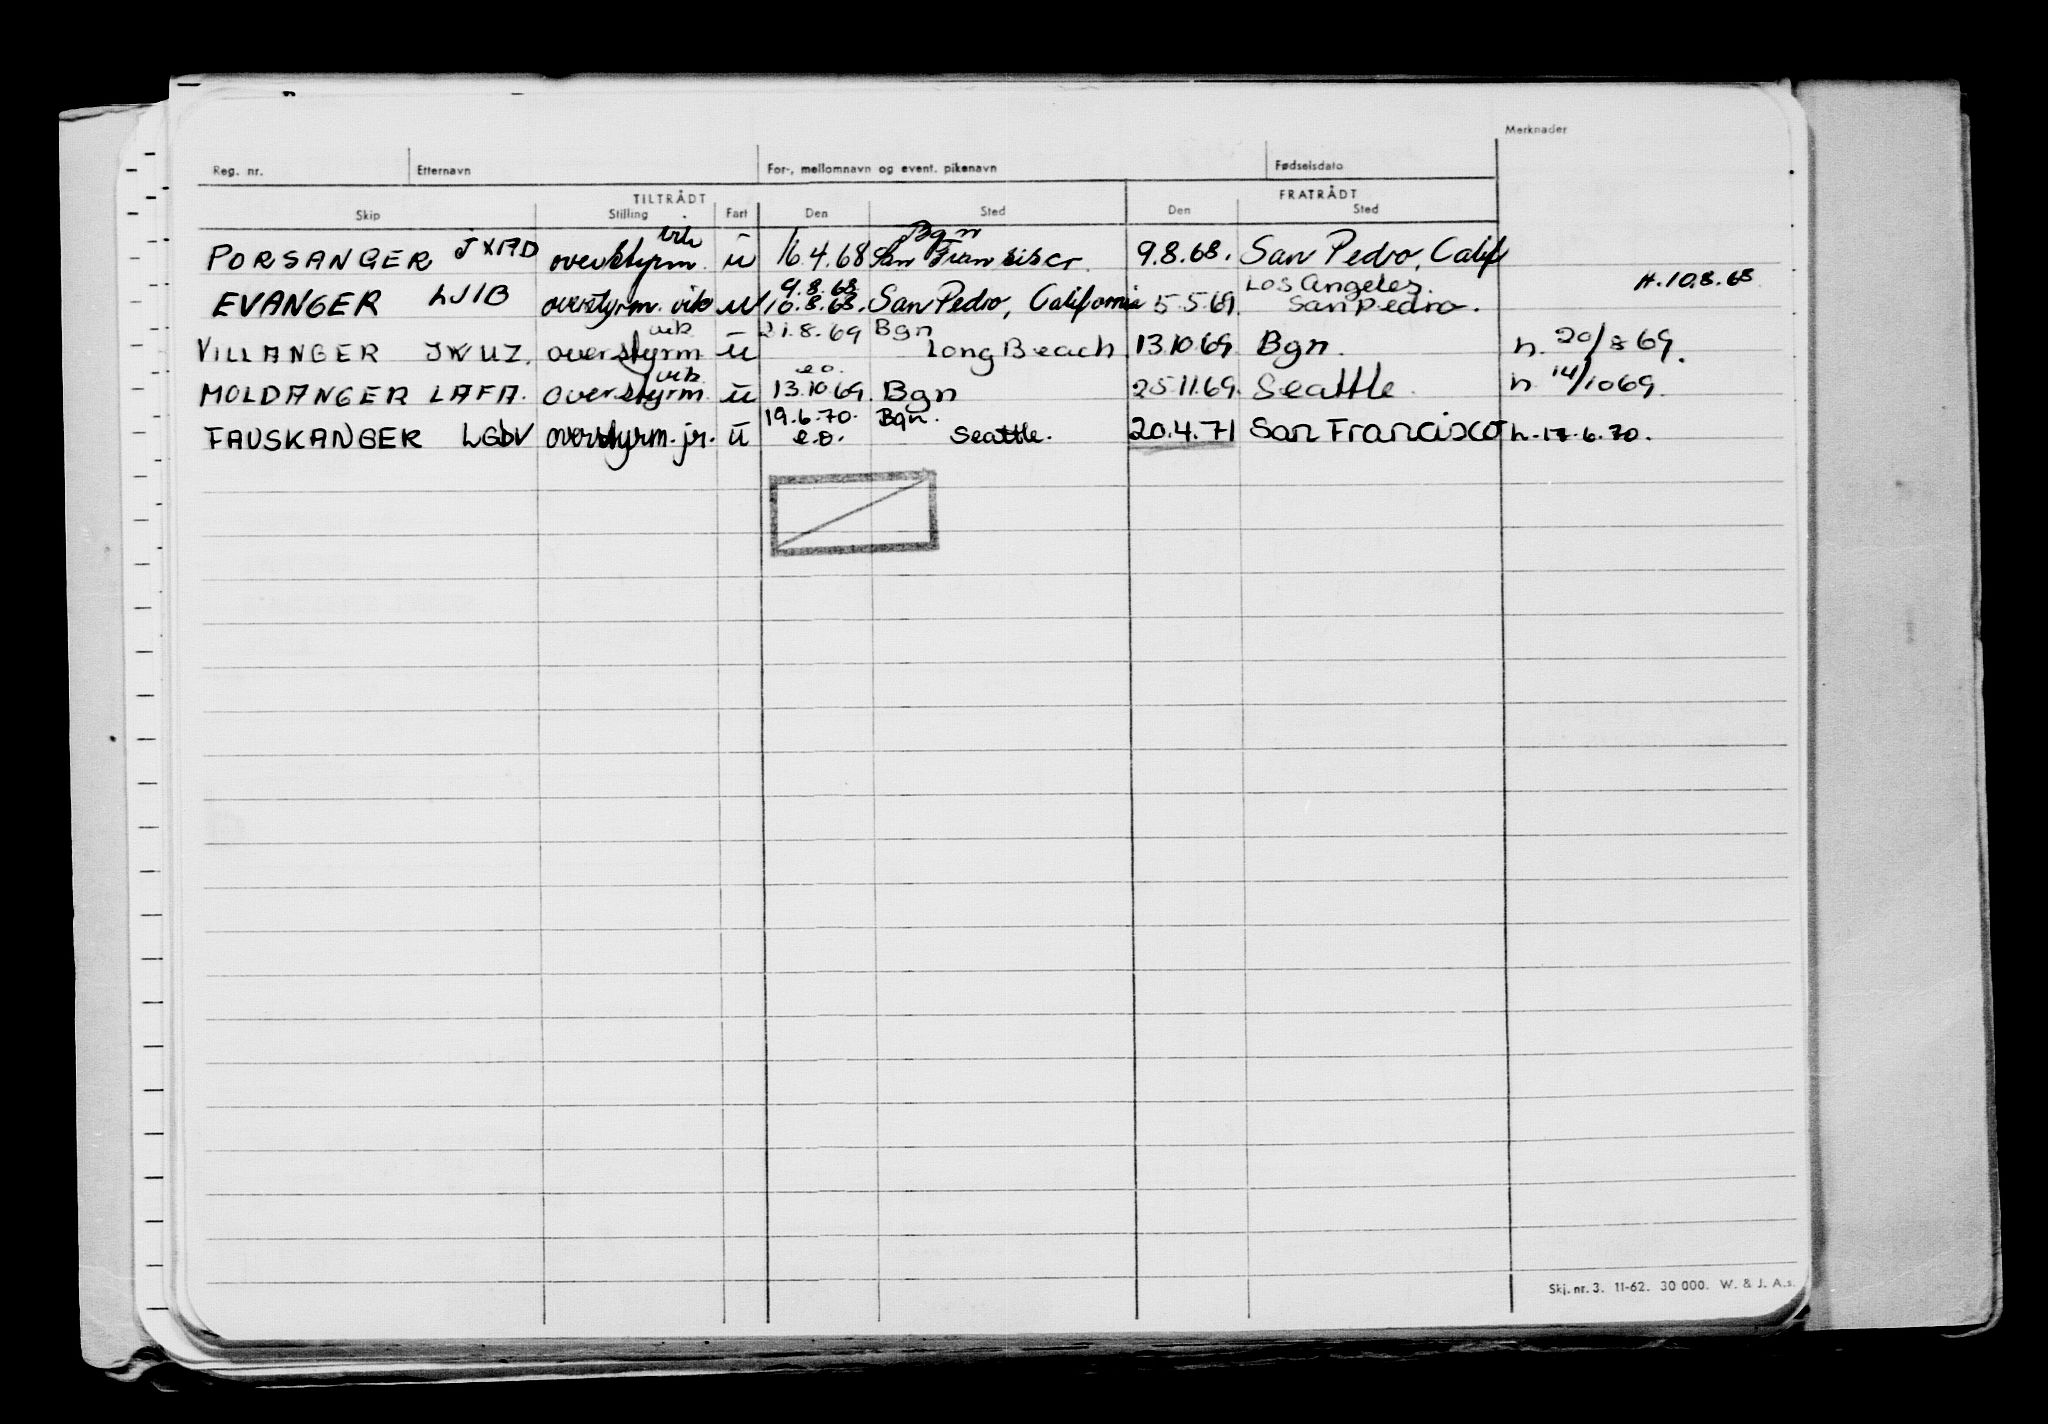 Merknader
Reg. nr. Etternavn For-, mellomnavn og event. pikenavn Fødselsdato
TILTRÅDT FRATRÅDT
Skip Stilling Fart Den Sted Den Sted
vik Bgn
PORSANGER JXAD overstyrm. ū 16.4.68 San Fransisco. 9.8.68. San Pedro, Calif
9.8.68 Los Angeles. H.10.8.68
EVANGER LJIB overstyrm. vik ū 10.8.68. San Pedro, California 5.5.69. San Pedro.
vik 21.8.69 Bgn
VILLANGER JWUZ. overstyrm ū Long Beach 13.10.69 Bgn. h. 20/8 69.
vik e.o.
MOLDANGER LAFA. overstyrm ū 13.10.69. Bgn 25.11.69. Seattle. h 14/10 69.
19.6.70. Bgn.
FAUSKANGER overstyrm. jr. ū e.o. Seattle. 20.4.71 San Francisco h.17.6.70.
Skj. nr. 3. 11-62. 30 000. W. & J. A.s.